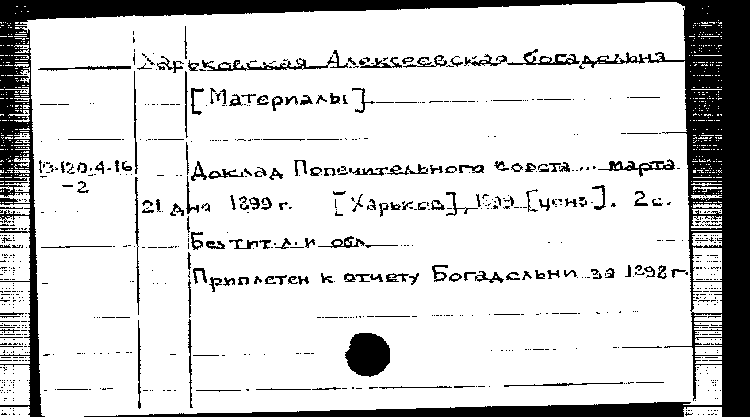 Харьковская Алексеевская богадельня
[Материалы].
13-120-4-16
-2
Доклад Попечительного совета ... марта
21 дня 1899 г. [Харьков], 1899 [ценз]. 2 с.
Без тит. л. и обл.
Приплетен к отчету Богадельни за 1898 г.